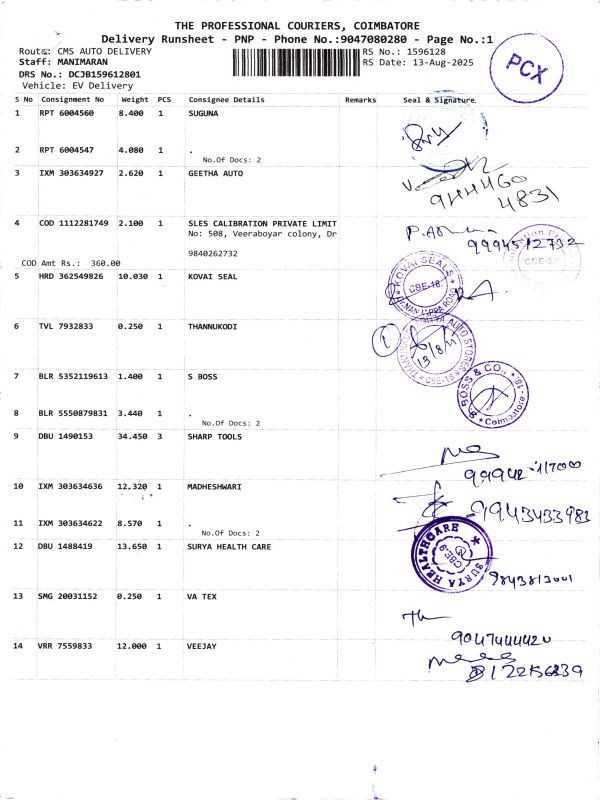 THE PROFESSIONAL COURIERS, COIMBATORE
Delivery Runsheet - PNP - Phone No.:9047080280 - Page No.:1
Route: CMS AUTO DELIVERY
RS No.: 1596128
Staff: MANIMARAN
RS Date: 13-Aug-2025
DRS No.: DCJB159612801
Vehicle: EV Delivery
PCX
S No Consignment No Weight PCS Consignee Details Remarks Seal & Signature.
1 RPT 6004560 8.400 1 SUGUNA
2 RPT 6004547 4.080 1 .
No.Of Docs: 2
3 IXM 303634927 2.620 1 GEETHA AUTO
944460
4831
4 COD 1112281749 2.100 1 SLES CALIBRATION PRIVATE LIMIT
No: 508, Veeraboyar colony, Dr
9994512732
9840262732
COD Amt Rs.: 360.00
5 HRD 362549826 10.030 1 KOVAI SEAL
KOVAI SEALS
CBE-18.
NANJAPPA ROAD
6 TVL 7932833 0.250 1 THANNUKODI
AUTO STORES
CBE-18
7 BLR 5352119613 1.400 1 S BOSS
BOSS & CO.,
Coimbatore - 18
8 BLR 5550879831 3.440 1 .
No.Of Docs: 2
9 DBU 1490153 34.450 3 SHARP TOOLS
10 IXM 303634636 12.320 1 MADHESHWARI
9943433983
11 IXM 303634622 8.570 1 .
No.Of Docs: 2
12 DBU 1488419 13.650 1 SURYA HEALTH CARE
SURYA HEALTHCARE
CBE-9
9843813001
13 SMG 20031152 0.250 1 VA TEX
9047444420
14 VRR 7559833 12.000 1 VEEJAY